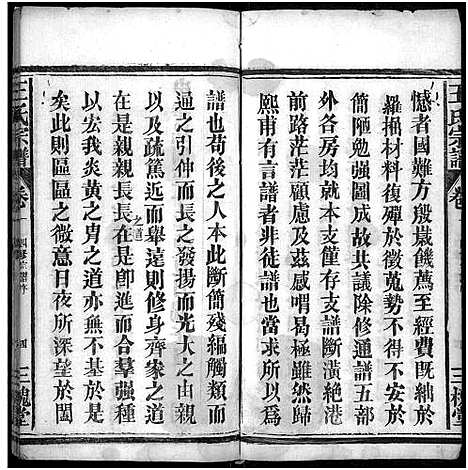 王氏宗譜 卷
憾者國難方殷歲饑薦至經費既絀於
羅掘材料復殫於徵蒐勢不得不安於
簡陋勉强圖成故共議除修通譜五部
外各房均支譜堇存支譜斷潢絶港
前路茫茫顧影滋感喟曷極雖然歸
熙甫有言譜者非徒譜其譜以爲有
譜也苟後之人本此斷簡殘編觸而
通之引伸而長之發揚而光大之由親
以及疏篤近而舉遠則孝弟之道
在是親親長長在是即進而羣強
以宏我炎黃之冑之道亦無不基於
矣此則區區之微意日夜所深望於閭
王氏宗譜 卷一
四
三槐堂